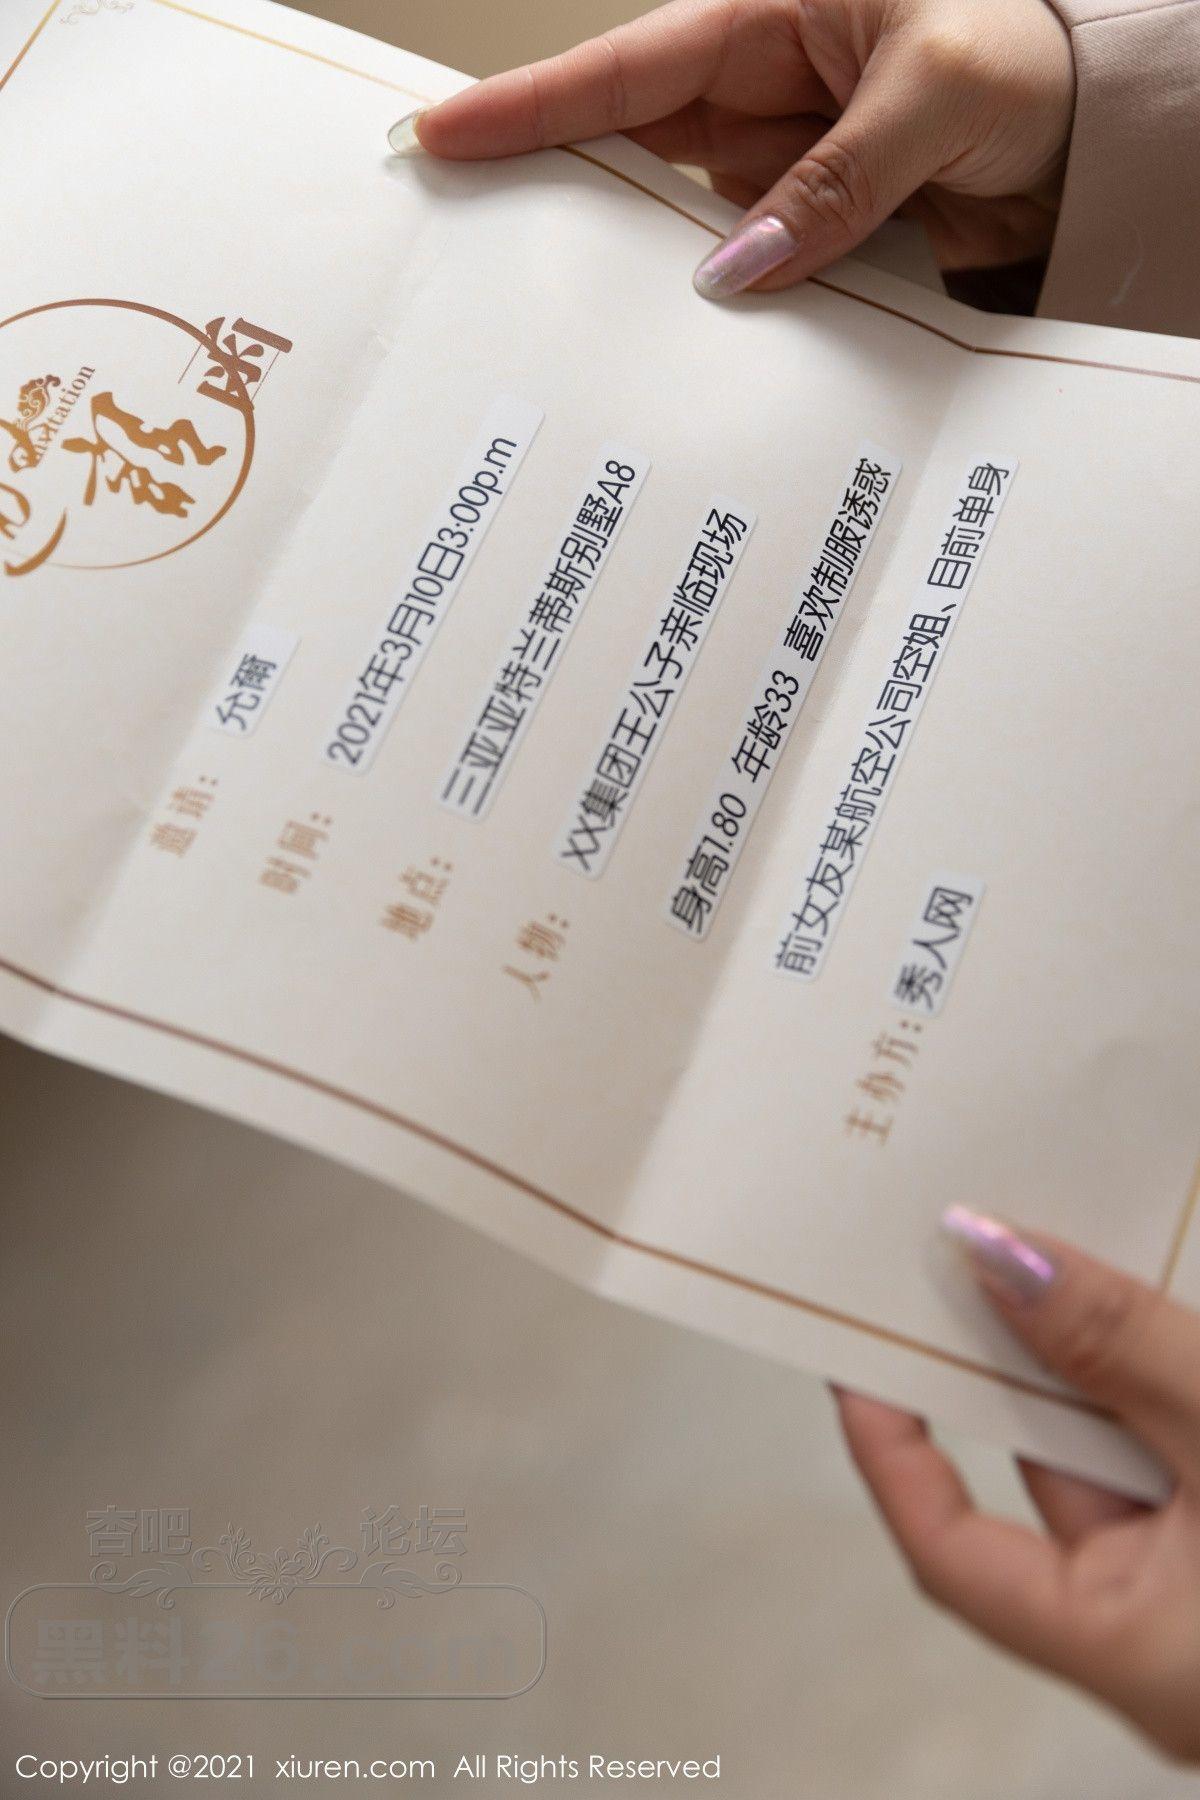 邀请函
Invitation
邀请：允爾
时间：2021年3月10日3:00p.m
地点：三亚亚特兰蒂斯别墅A8
人物：XX集团王公子亲临现场
身高1.80 年龄33 喜欢制服诱惑
前女友某航空公司空姐、目前单身
主办方：秀人网
杏吧论坛
黑料26.com
Copyright @2021 xiuren.com All Rights Reserved